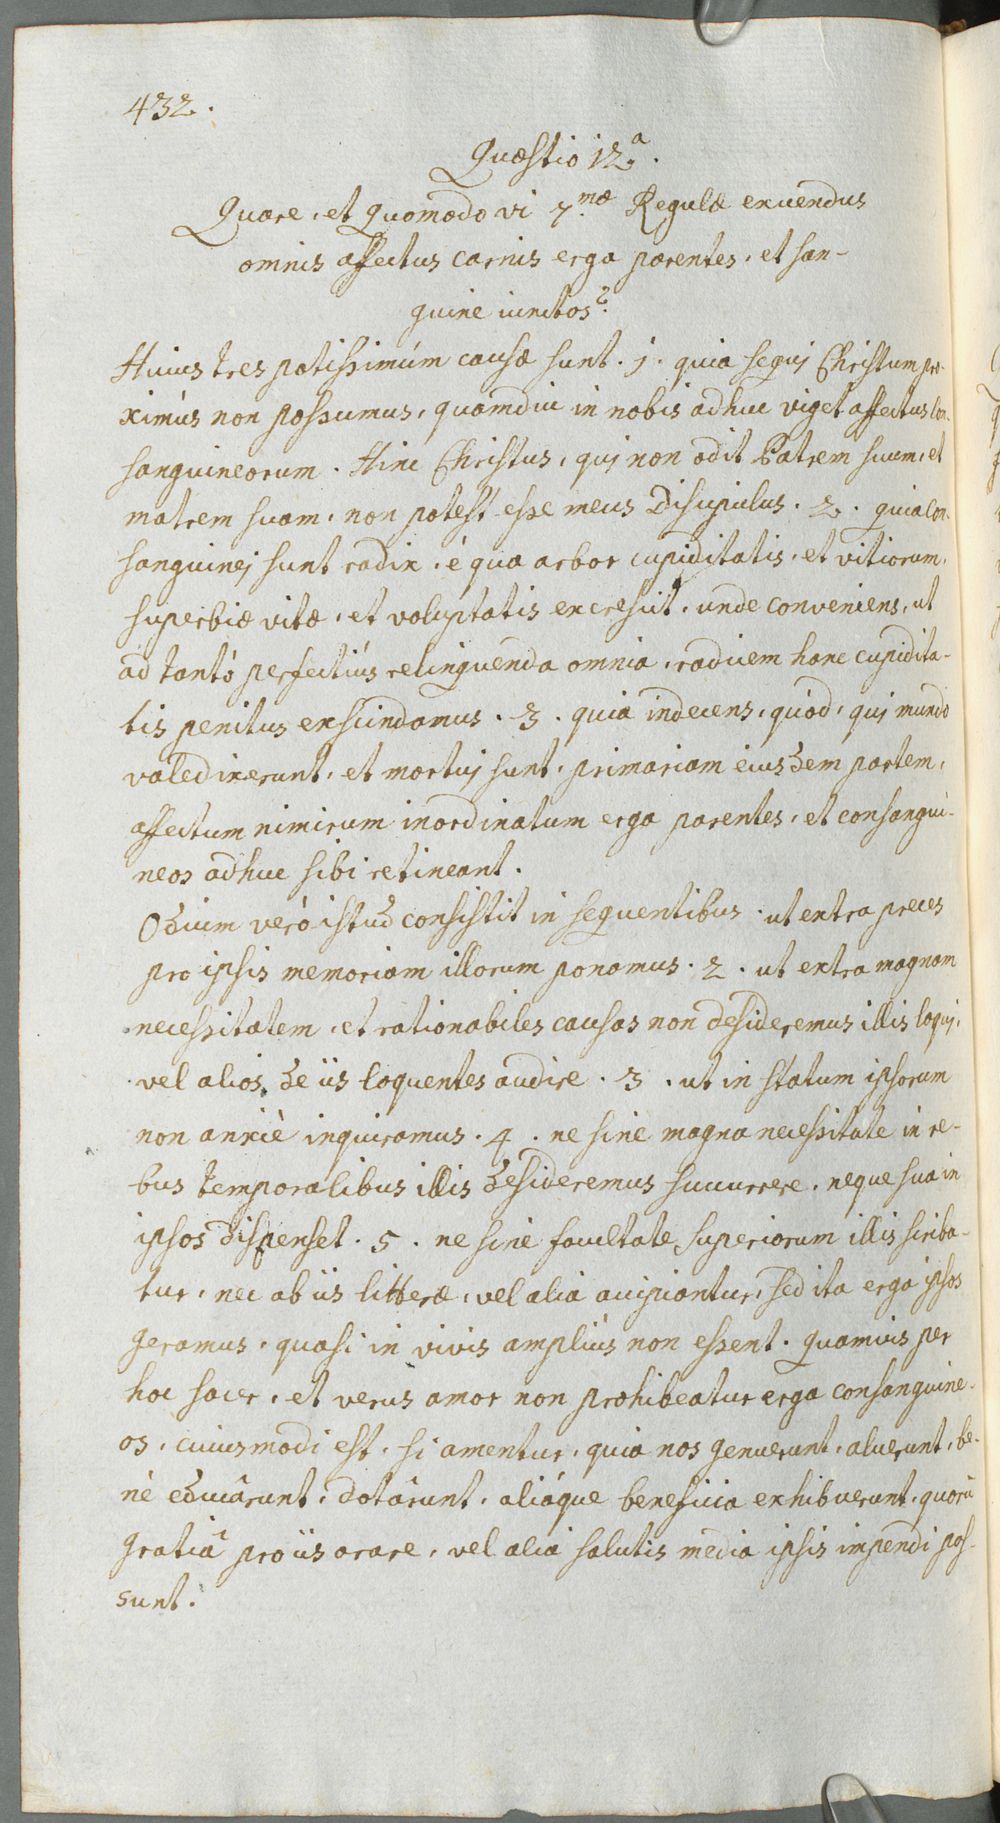 432.
Quæstio 12.ª
Quare, et Quomodo vi 7.mæ Regulæ exuendus
omnis affectus carnis erga parentes, et san-
guine iunctos?
Huius tres potissimúm causæ sunt. 1. quia sequj Christum pro-
ximiùs non possumus, quamdiu in nobis adhuc viget affectus con-
sanguineorum. Hinc Christus, quj non odit Patrem suum, et
matrem suam, non potest esse meus Discipulus. 2. quia con-
sanguinej sunt radix, è qua arbor cupiditatis, et vitiorum,
superbiæ vitæ, et voluptatis excrescit, unde conveniens, ut
ad tantò perfectiús relinquenda omnia, radicem hanc cupidita-
tis penitus exscindamus. 3. quia indecens, quód, quj mundo
valedixerunt, et mortuj sunt, primariam eiusdem partem,
affectum nimirum inordinatum erga parentes, et consangui-
neos adhuc sibi retineant.
Odium verò istud consistit in sequentibus. ut extra preces
pro ipsis memoriam illorum ponamus. 2. ut extra magnam
necessitatem, et rationabiles causas non desideremus illis loquj,
vel alios de iis loquentes audire. 3. ut in statum ipsorum
non anxiè inquiramus. 4. ne sine magna necessitate in re-
bus temporalibus illis desideremus succurrere, neque sua in
ipsos dispenset. 5. ne sine facultate Superiorum illis scriba-
tur, nec ab iis litteræ, vel alia accipiantur, sed ita erga ipsos
geramus, quasi in vivis ampliùs non essent. quamvis per
hoc sacer, et verus amor non prohibeatur erga consanguine-
os, cuiusmodi est, si amentur, quia nos genuerunt, aluerunt, be-
nè educârunt, dotârunt, aliáque beneficia exhibuerunt, quorū
gratiâ pro iis orare, vel alia salutis media ipsis impendi pos-
sunt.